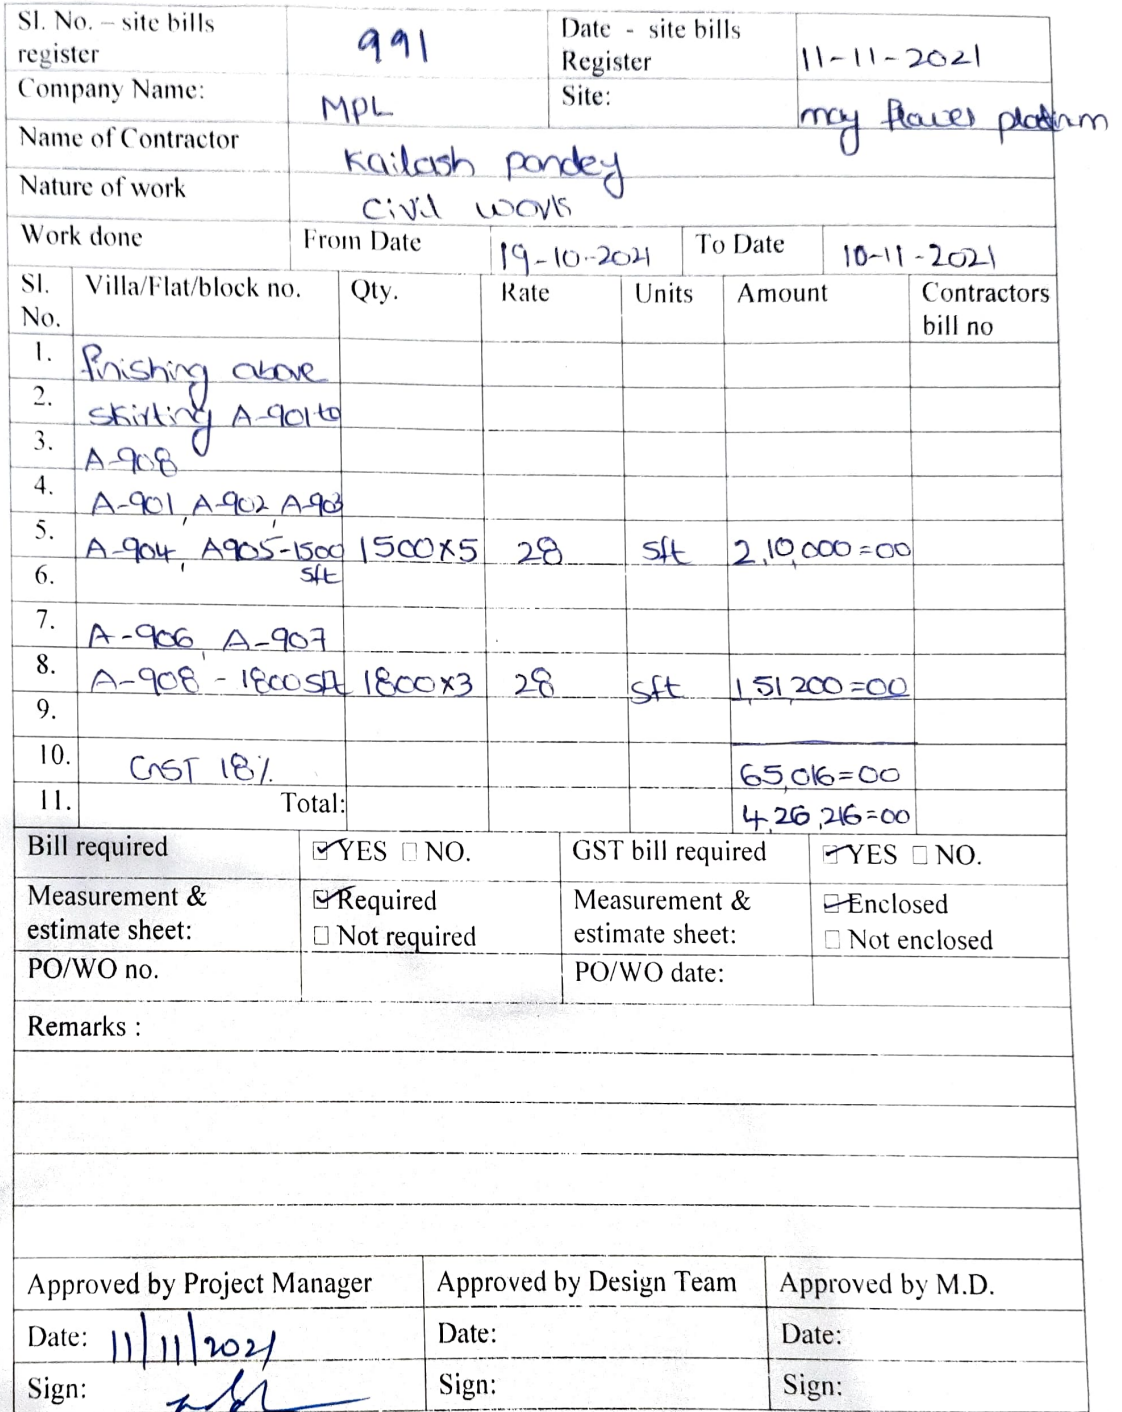 Sl. No. – site bills register 991 Date - site bills Register 11-11-2021
Company Name: MPL Site: may flower platinum
Name of Contractor Kailash pandey
Nature of work Civil work
Work done From Date 19-10-2021 To Date 10-11-2021
Sl. No. Villa/Flat/block no. Qty. Rate Units Amount Contractors bill no
1. finishing above
2. skirting A-901 to
3. A-908
4. A-901, A-902, A-903
5. A-904, A905-1500 1500x5 28 sft 2,10,000=00
6. sft
7. A-906, A-907
8. A-908 - 1800sft 1800x3 28 sft 1,51,200=00
9.
10. GST 18% 65,016=00
11. Total: 4,26,216=00
Bill required YES NO. GST bill required YES NO.
Measurement & estimate sheet: Required Not required Measurement & estimate sheet: Enclosed Not enclosed
PO/WO no. PO/WO date:
Remarks :
Approved by Project Manager Approved by Design Team Approved by M.D.
Date: 11/11/2021 Date: Date:
Sign: Sign: Sign: